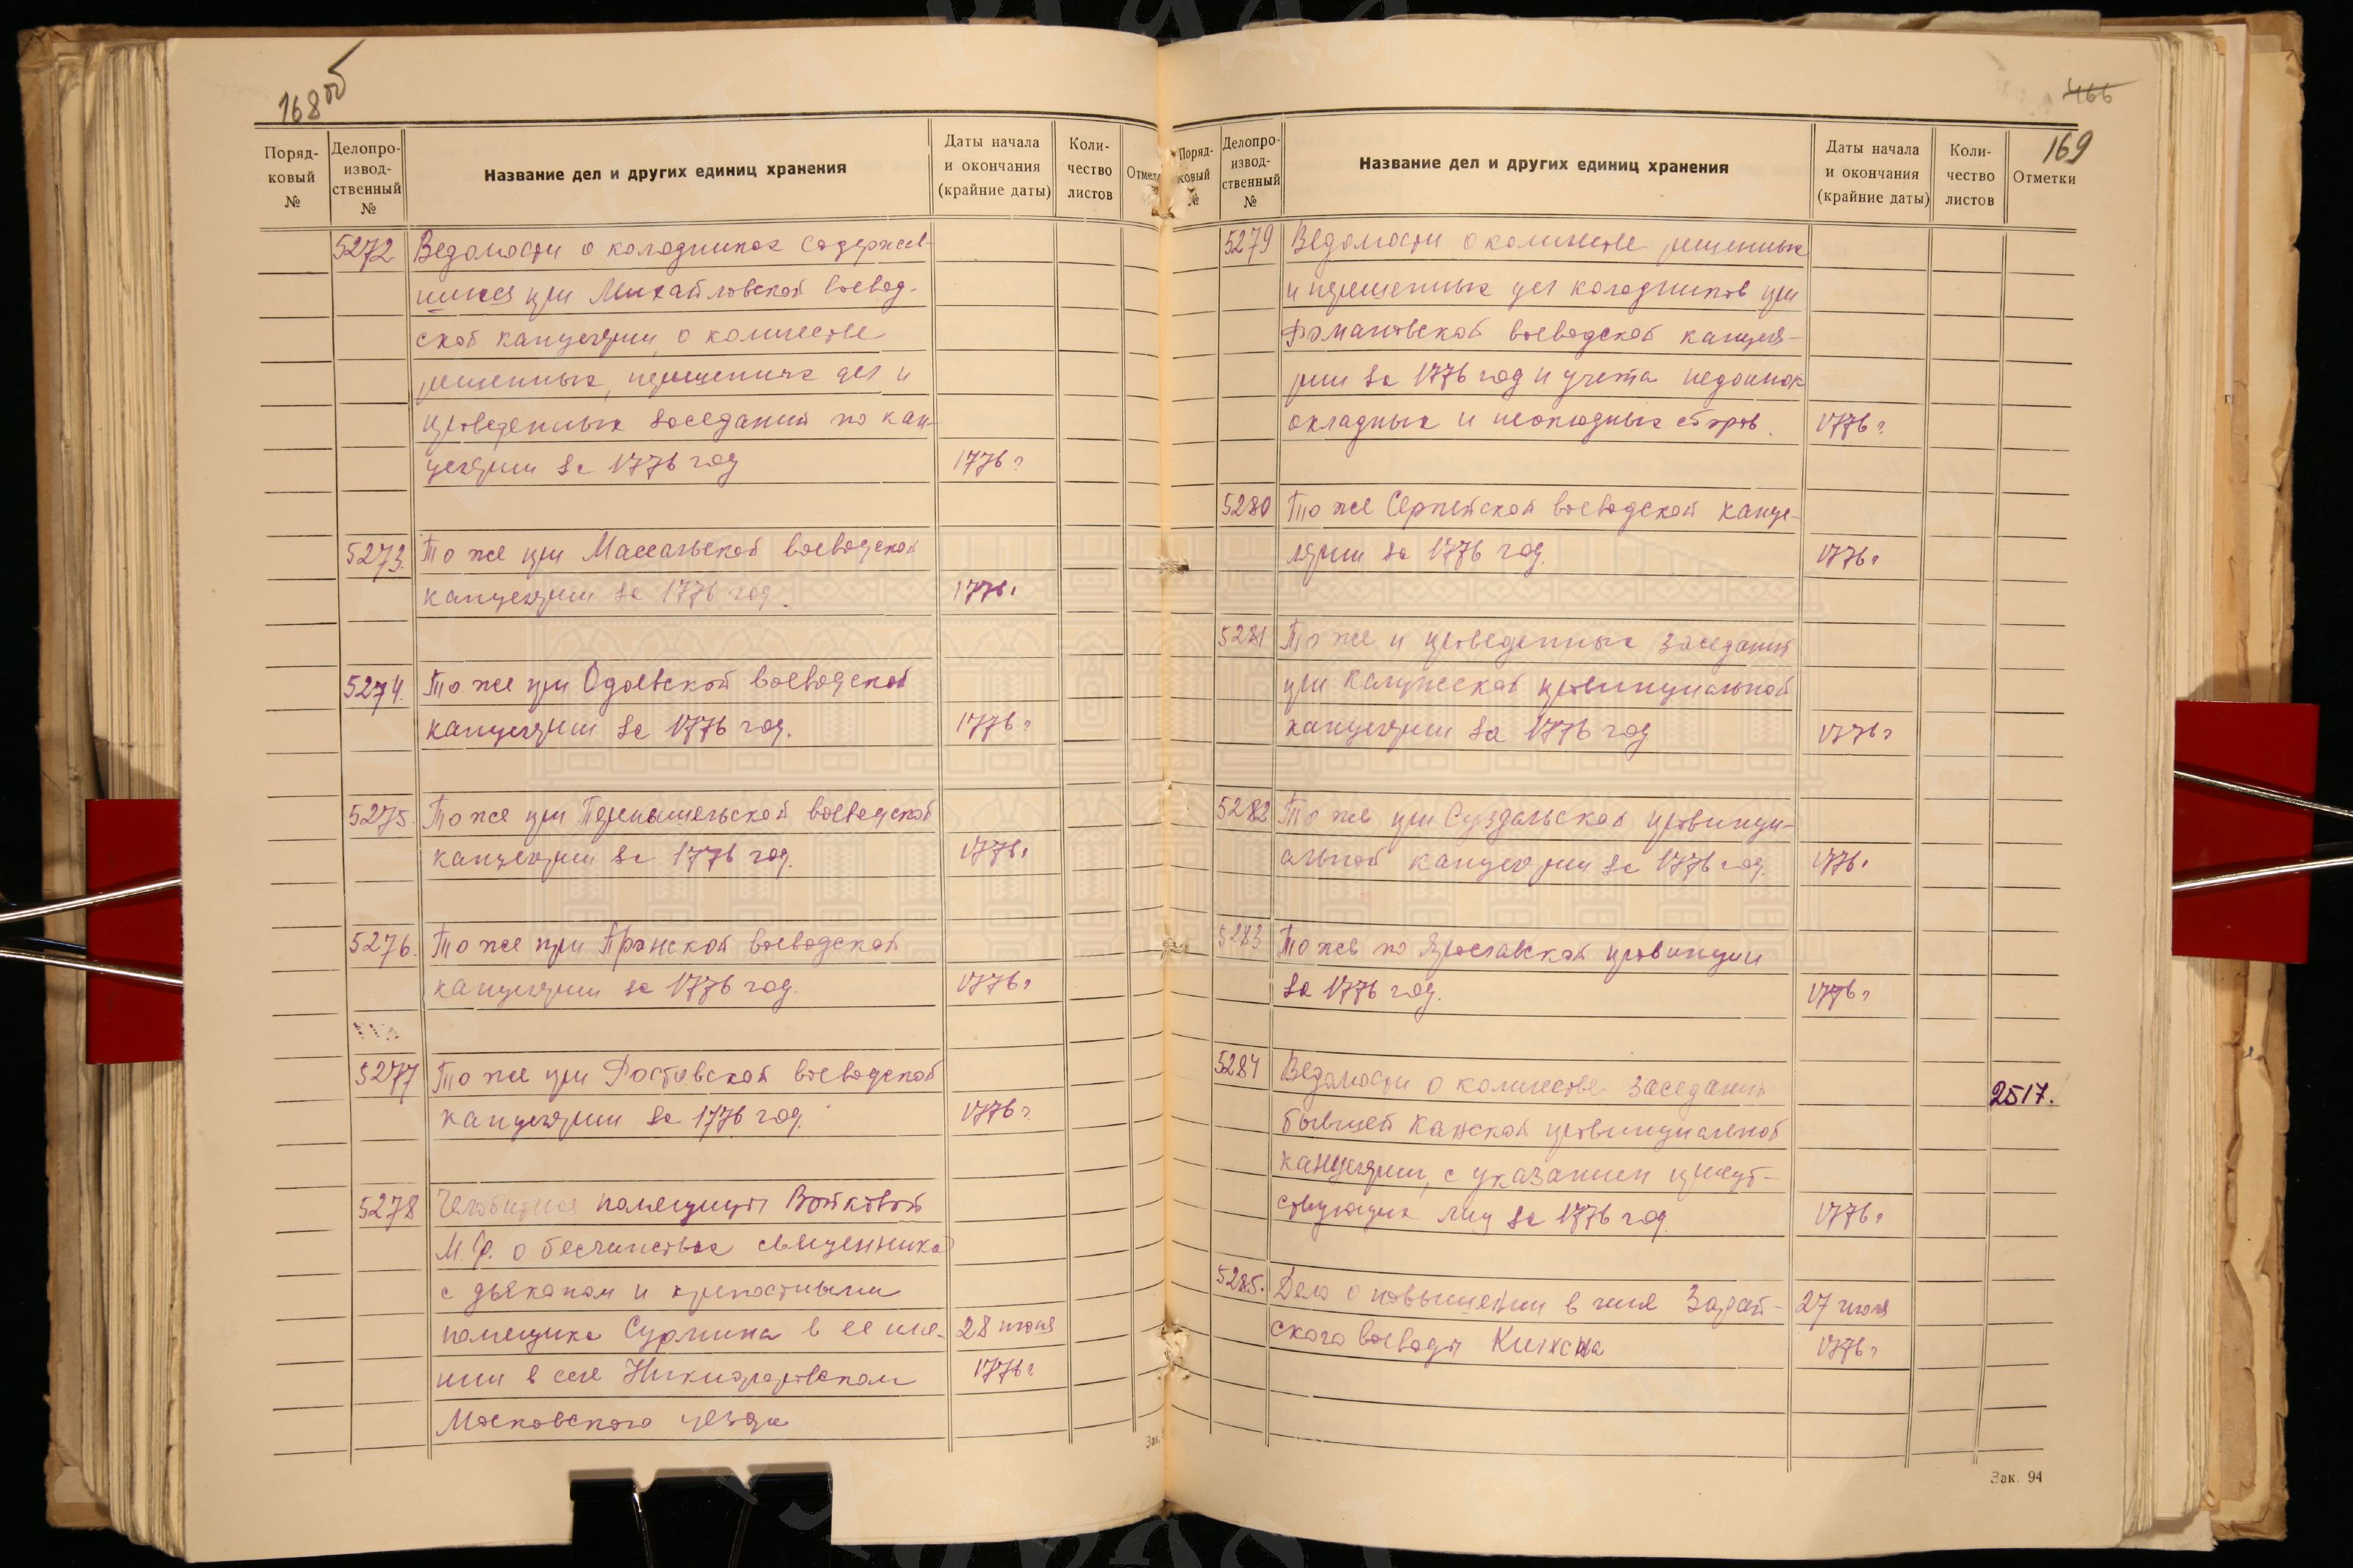 168об
Поряд-
ковый
№
Делопро-
извод-
ственный
№
Название дел и других единиц хранения
Даты начала
и окончания
(крайние даты)
Коли-
чество
листов
Отмет
5272 Ведомости о колодниках содержав-
шихся при Михайловской воевод-
ской канцелярии, о количестве
решенных, нерешенных дел и
проведенных заседаний по кан-
целярии за 1776 год 1776 г
5273. То же при Массальской воеводской
канцелярии за 1776 год. 1776 г
5274. То же при Одоевской воеводской
канцелярии за 1776 год. 1776 г
5275. То же при Перемышельской воеводской
канцелярии за 1776 год. 1776 г
5276. То же при Пронской воеводской
канцелярии за 1776 год. 1776 г
5277 То же при Ростовской воеводской
канцелярии за 1776 год. 1776 г
5278 Челобитная помещицы Войковой
М. Ф. о бесчинствах священника
с дьяконом и крепостными
помещика Сурмина в ее име- 28 июня
нии в селе Никифоровском 1776 г
Московского уезда
466
169
Поряд-
ковый
№
Делопро-
извод-
ственный
№
Название дел и других единиц хранения
Даты начала
и окончания
(крайние даты)
Коли-
чество
листов
Отметки
5279 Ведомости о количестве решенных
и нерешенных дел колодников при
Романовской воеводской канцеля-
рии за 1776 год и учета недоимок
окладных и неокладных сборов. 1776 г
5280 То же Серпейской воеводской канце-
лярии за 1776 год. 1776 г
5281 То же и проведенных заседаний
при Калужской провинциальной
канцелярии за 1776 год 1776 г
5282 То же при Суздальской провинци-
альной канцелярии за 1776 год. 1776 г
5283 То же по Ярославской провинции
за 1776 год. 1776 г
5284 Ведомости о количестве заседаний 2517.
бывшей провинциальной
канцелярии, с указанием присут-
ствующих лиц за 1776 год. 1776 г
5285. Дело о повышении в чине Зарай- 27 июля
ского воеводы 1776 г
Зак. 94